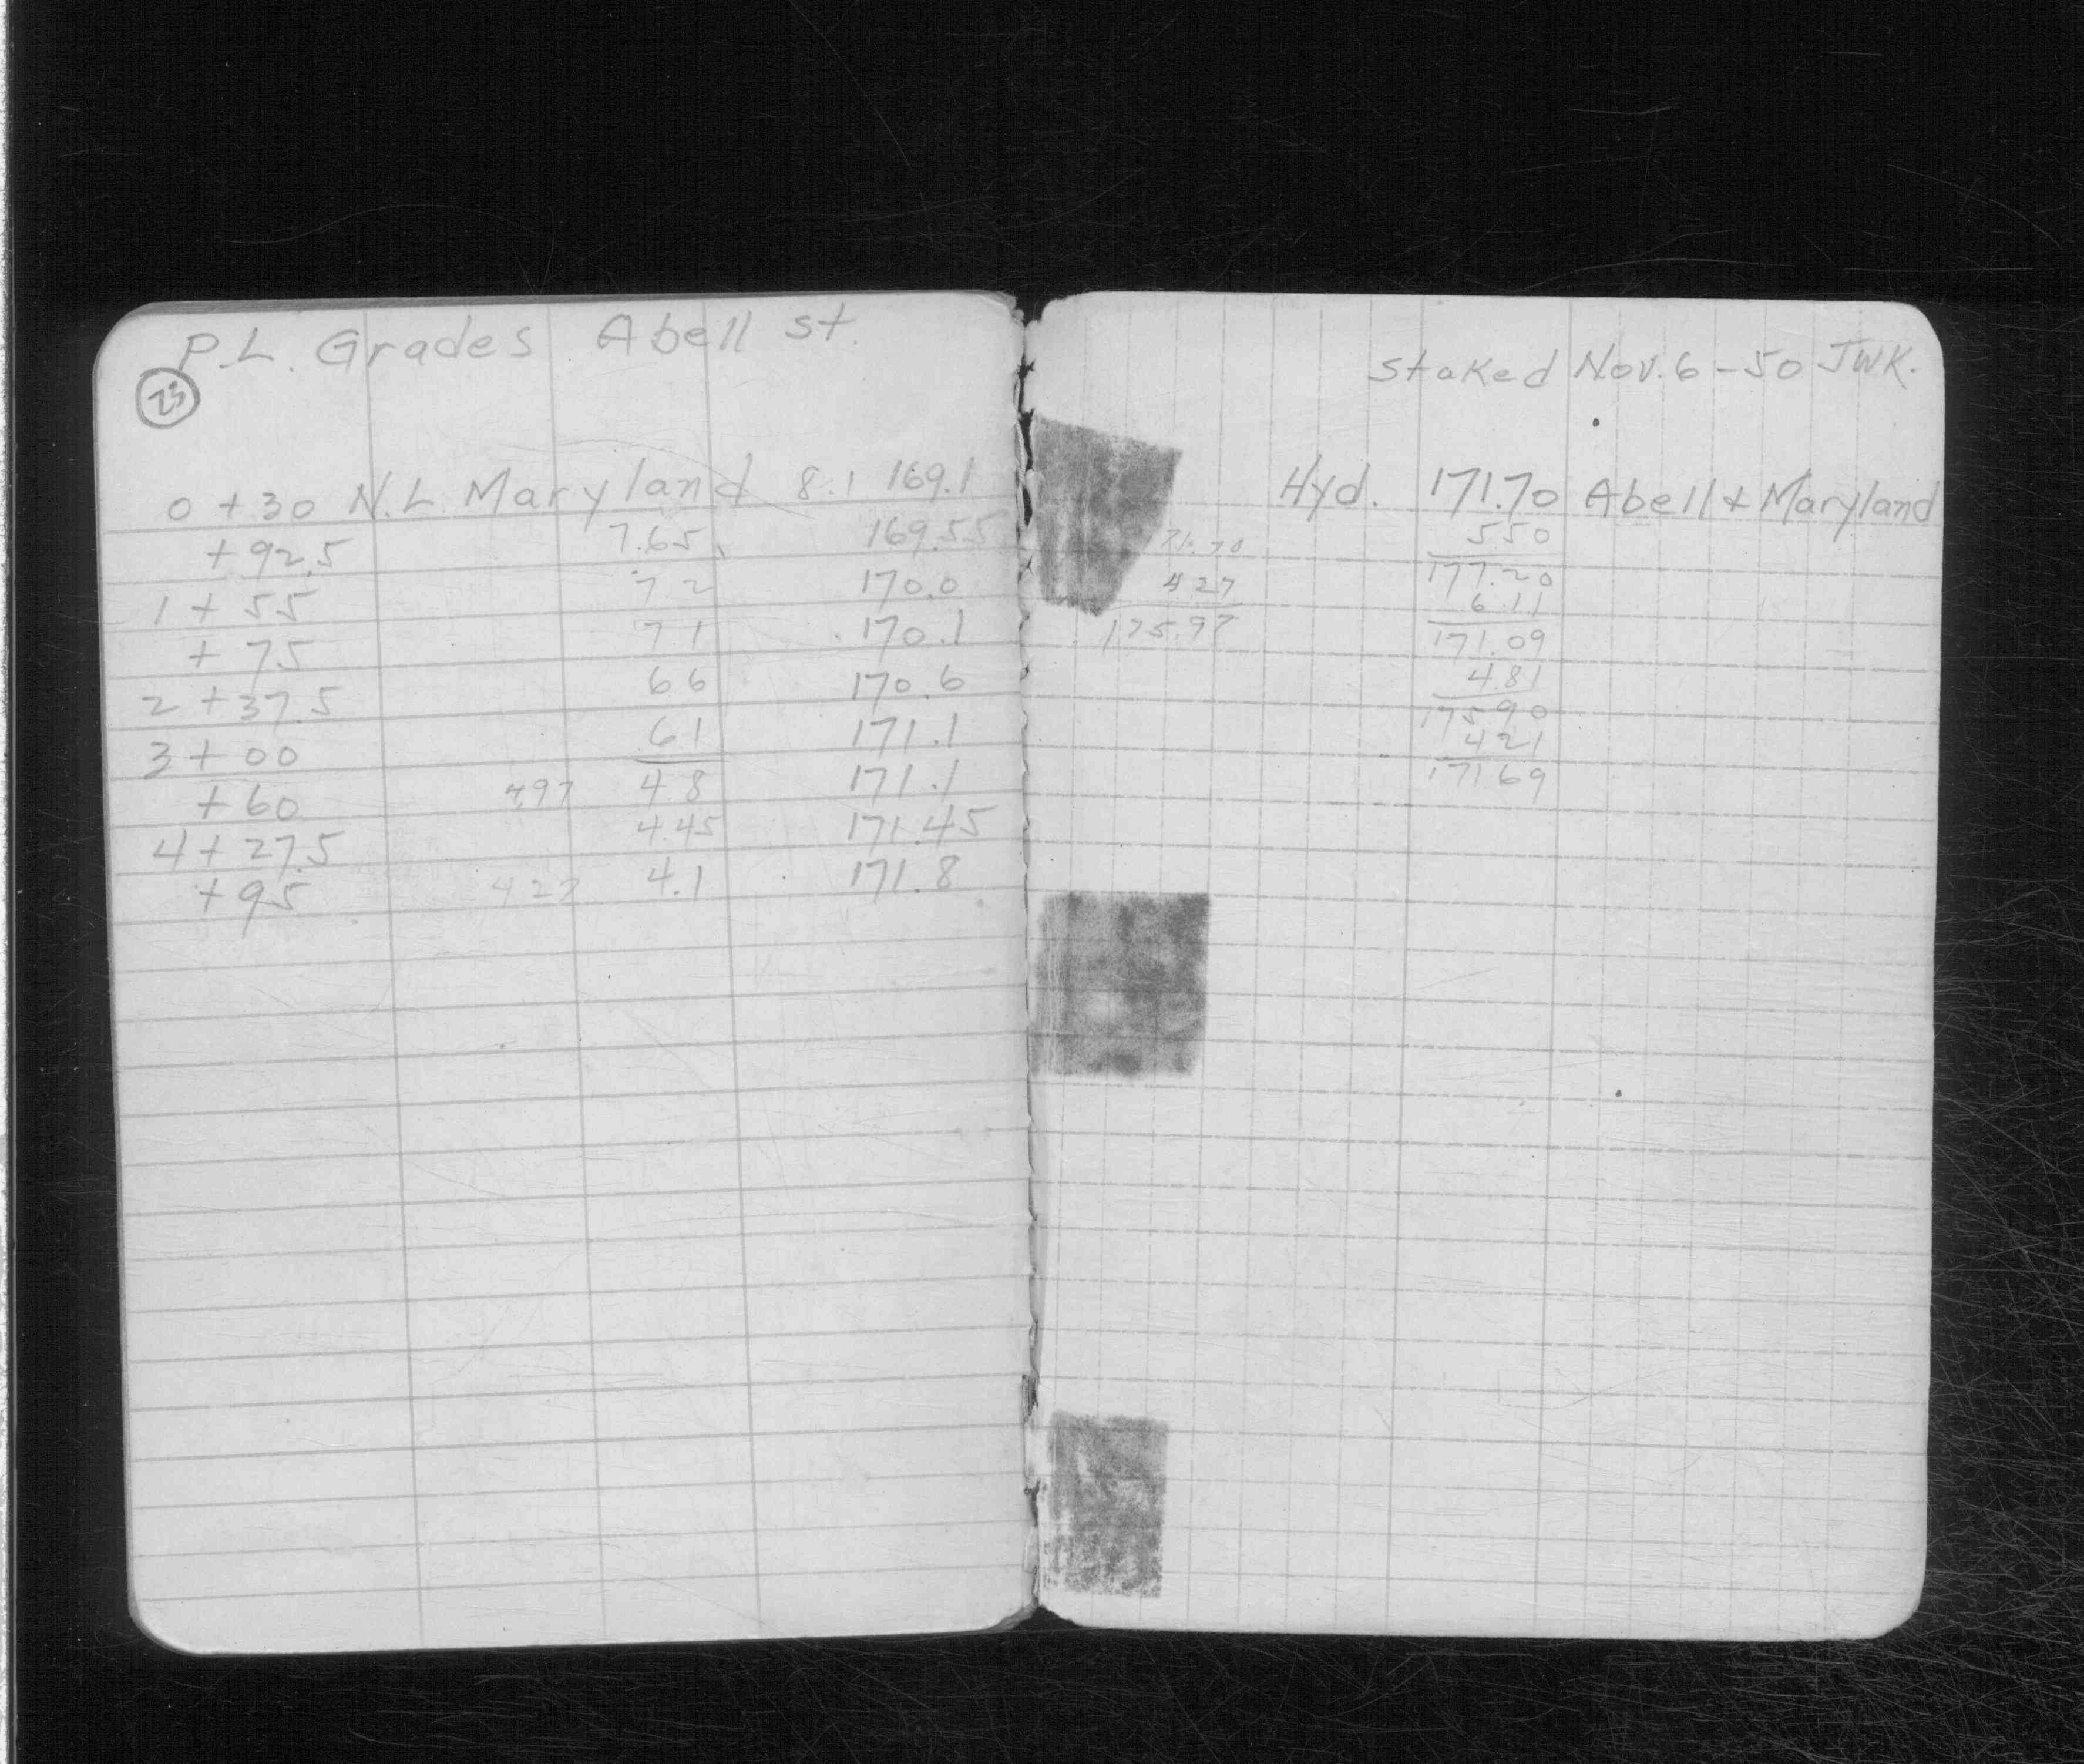 P.L. Grades Abell st.
25
0 + 30 N.L. Maryland 8.1 169.1
+ 92.5 7.65 169.55
1 + 55 7.2 170.0
+ 75 7 1 170.1
2 + 37.5 6 6 170.6
3 + 00 6 1 171.1
+ 60 4.97 4.8 171.1
4 + 27.5 4.45 171.45
+ 95 4 27 4.1 171.8
Staked Nov. 6 - 50 JWK.
Hyd. 171.70 Abell & Maryland
71.70
4 27
175.97
5 50
177.20
6.11
171.09
4 81
175 90
4 21
171 69